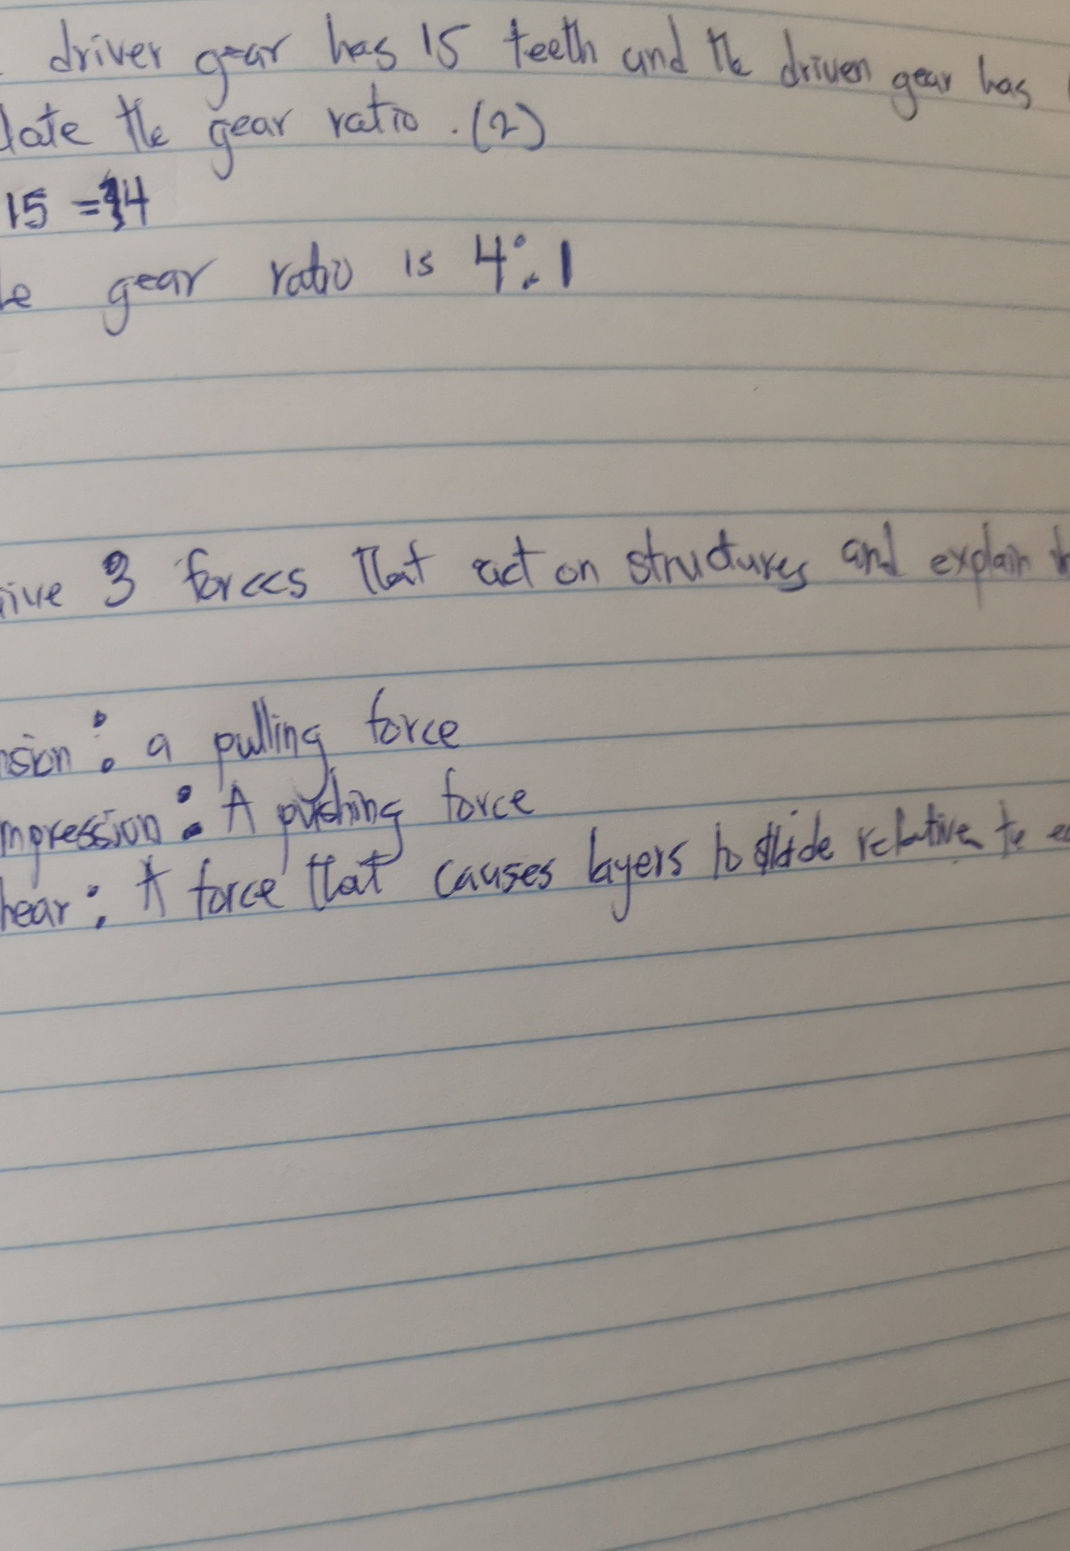 driver gear has 15 teeth and the driven gear has
late the gear ratio. (2)
15 = 4
gear ratio is 4:1
ive 3 forces that act on structures and explain
nsion: a pulling force
mpression: A pushing force
hear: A force that causes layers to slide relative to